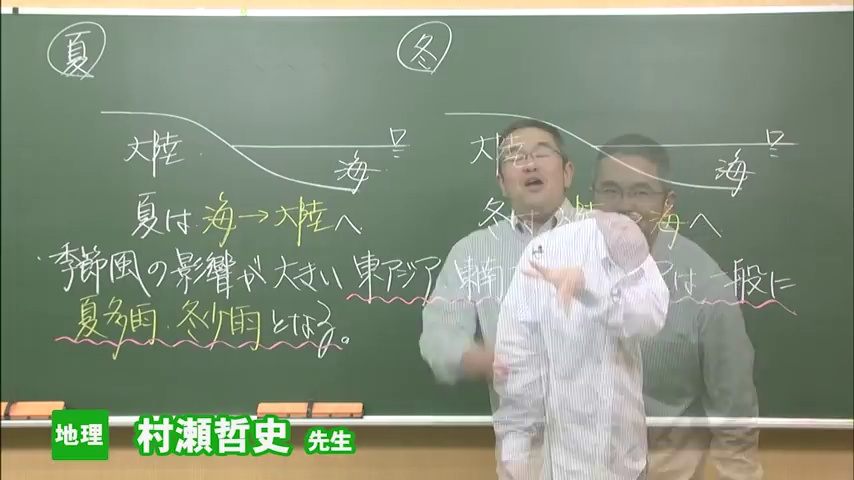 夏
冬
大陸
海
大陸
海
夏は 海→大陸へ
冬は
海へ
季節風の影響が大きい東アジア 東南
アは一般に
夏多雨、冬少雨となる。
地理 村瀬哲史 先生